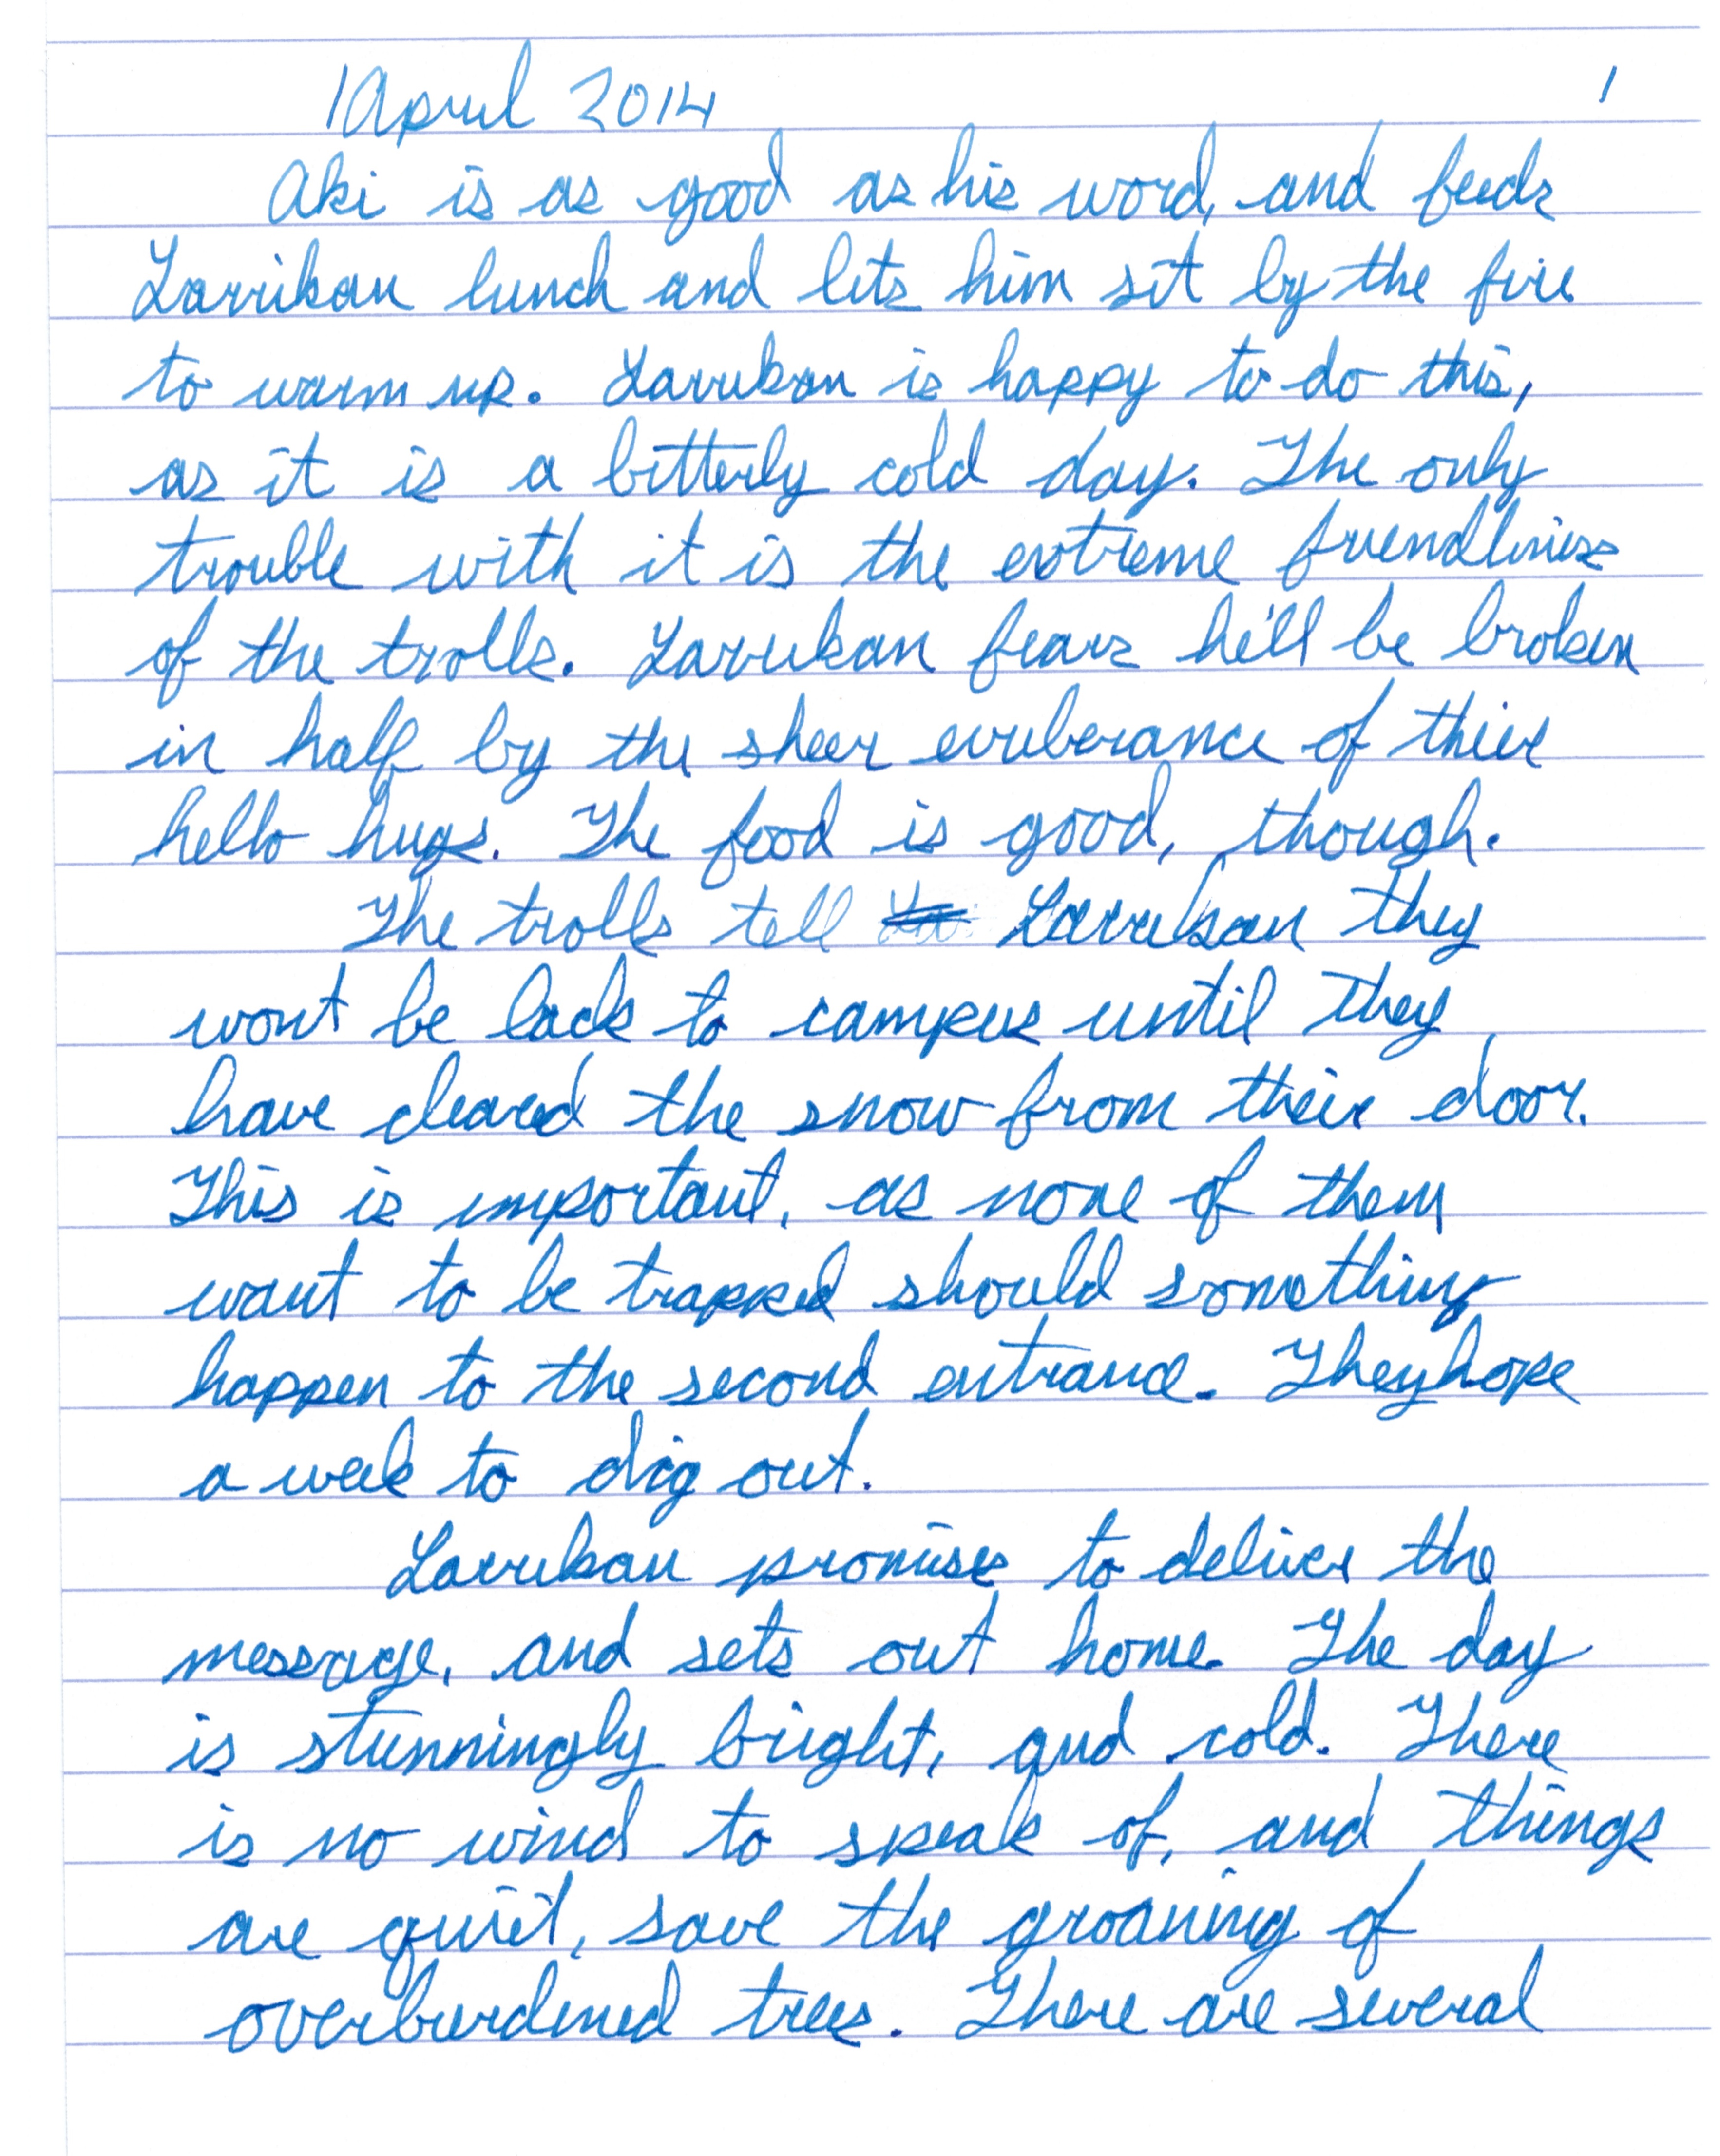 1 April 2014 1
Aki is as good as his word, and feeds
Larrikan lunch and lets him sit by the fire
to warm up. Larrikan is happy to do this,
as it is a bitterly cold day. The only
trouble with it is the extreme friendliness
of the trolls. Larrikan fears he'll be broken
in half by the sheer exuberance of thier
hello hugs. The food is good, though.
The trolls tell Larrikan they
wont be back to campus until they
have cleared the snow from their door.
This is important, as none of them
want to be trapped should something
happen to the second entrance. They hope
a week to dig out.
Larrikan promises to deliver the
message, and sets out home. The day
is stunningly bright, and cold. There
is no wind to speak of, and things
are quiet, save the groaning of
overburdened trees. There are several